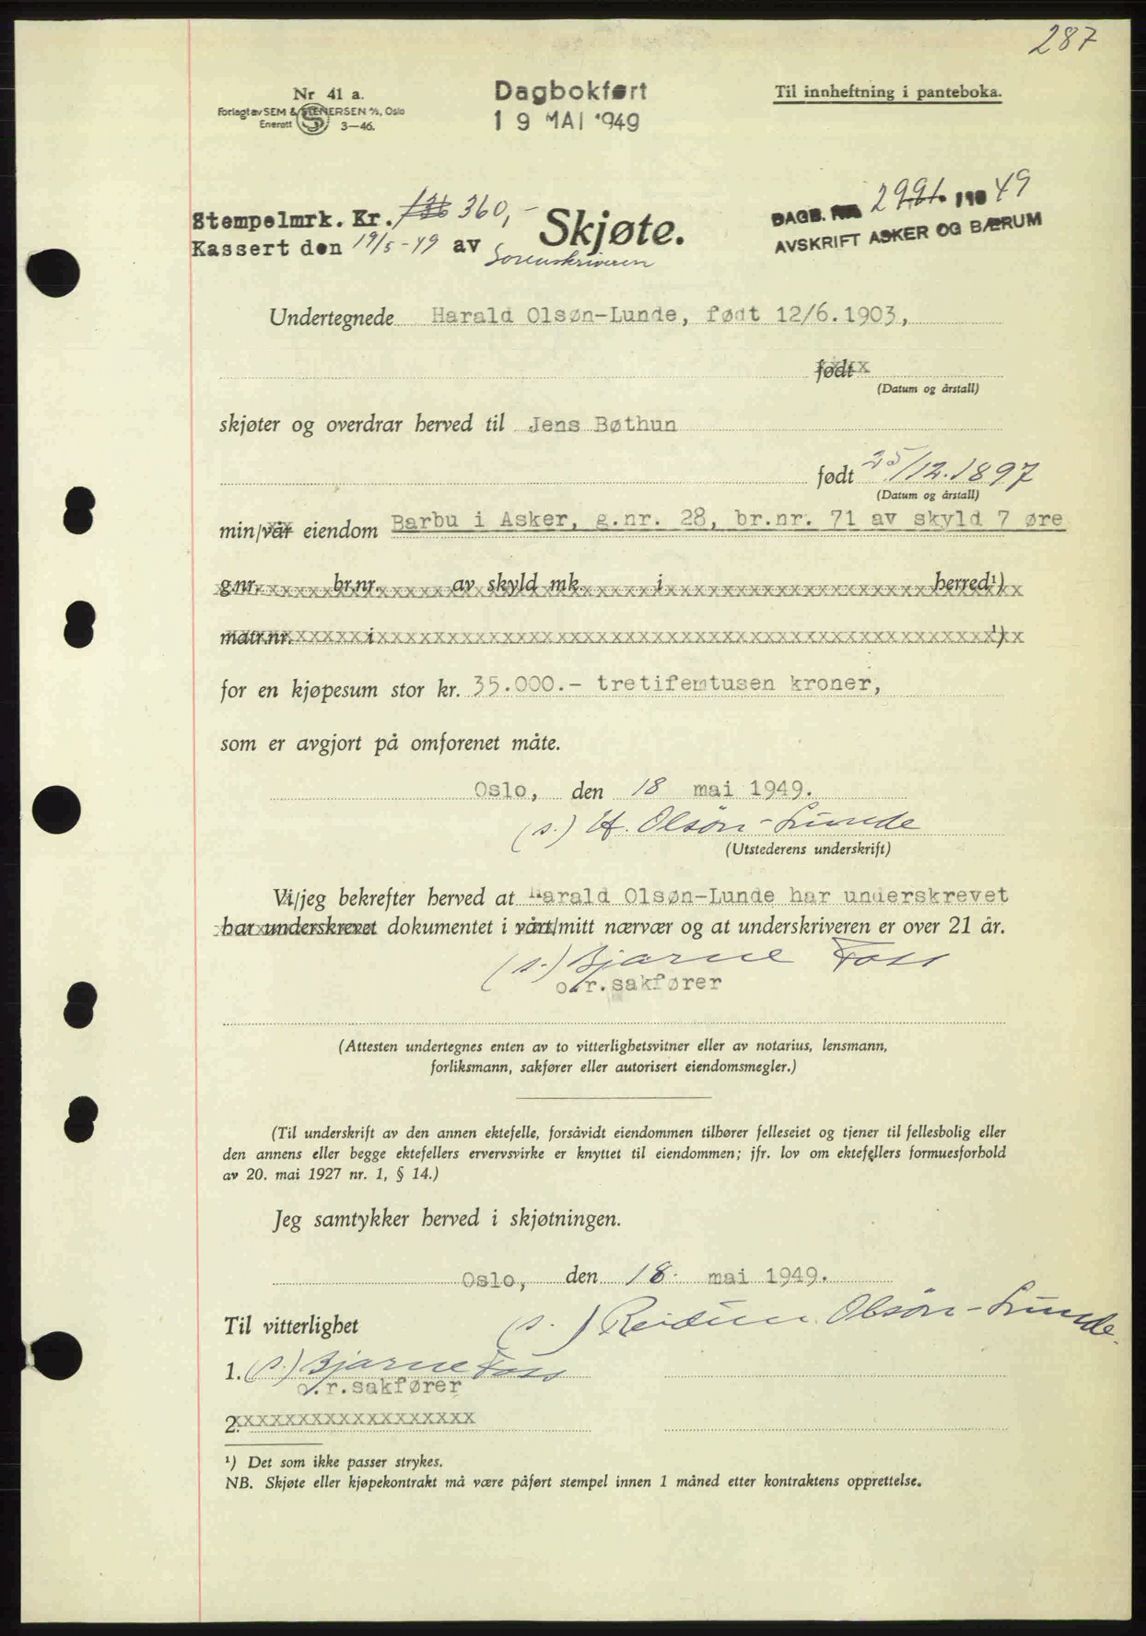 287
Nr 41 a.
Forlagt av SEM & STENERSEN A/S, Oslo
Enerett 3—46.
Dagbokført
19 MAI 1949
Til innheftning i panteboka.
Stempelmrk. Kr. 360,-
Kassert den 19/5-49 av Sorenskriveren
Skjøte.
DAGB. 2991. 19 49
AVSKRIFT ASKER OG BÆRUM
Undertegnede Harald Olsøn-Lunde, født 12/6.1903,
født
(Datum og årstall)
skjøter og overdrar herved til Jens Bøthun
født 25/12.1897
(Datum og årstall)
min/vår eiendom Barbu i Asker, g.nr. 28, br.nr. 71 av skyld 7 øre
g.nr. br.nr. av skyld mk. i herred¹)
matr.nr. i ¹)
for en kjøpesum stor kr. 35.000.- tretifemtusen kroner,
som er avgjort på omforenet måte.
Oslo, den 18 mai 1949.
(s.) H. Olsøn-Lunde
(Utstederens underskrift)
Vi/jeg bekrefter herved at Harald Olsøn-Lunde har underskrevet
har underskrevet dokumentet i vårt/mitt nærvær og at underskriveren er over 21 år.
(s.) Bjarne Foss
o.r.sakfører
(Attesten undertegnes enten av to vitterlighetsvitner eller av notarius, lensmann,
forliksmann, sakfører eller autorisert eiendomsmegler.)
(Til underskrift av den annen ektefelle, forsåvidt eiendommen tilhører felleseiet og tjener til fellesbolig eller
den annens eller begge ektefellers ervervsvirke er knyttet til eiendommen; jfr. lov om ektefellers formuesforhold
av 20. mai 1927 nr. 1, § 14.)
Jeg samtykker herved i skjøtningen.
Oslo, den 18. mai 1949.
(s.) Reidun Olsøn-Lunde.
Til vitterlighet
1. (s.) Bjarne Foss
o.r.sakfører
2. xxxxxxxxxxxxxxxxxx
¹) Det som ikke passer strykes.
NB. Skjøte eller kjøpekontrakt må være påført stempel innen 1 måned etter kontraktens opprettelse.